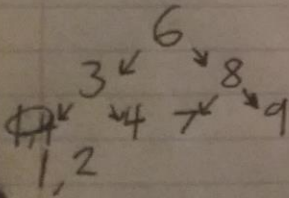 6
3 8
4 7 9
1, 2